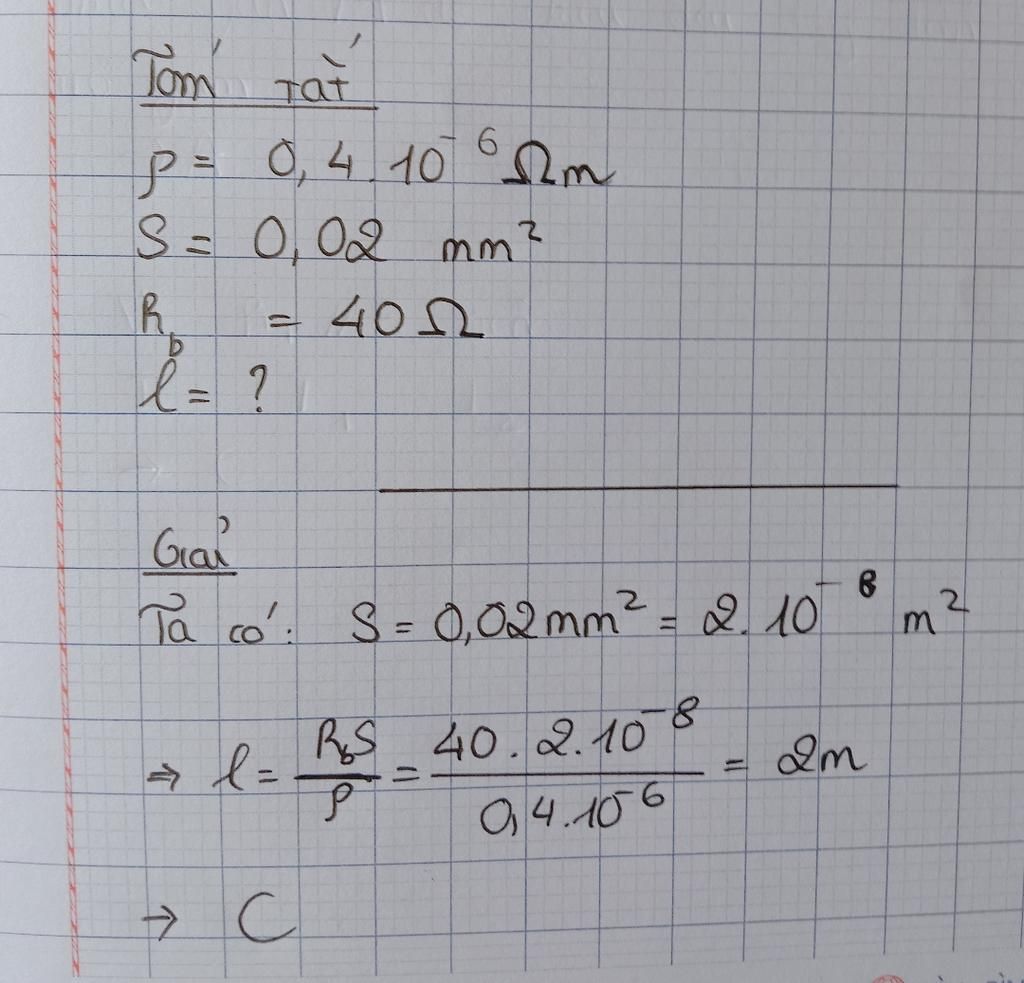 Tóm tắt
ρ = 0,4.10⁻⁶ Ωm
S = 0,02 mm²
R_b = 40Ω
l = ?
Giải
Ta có: S = 0,02mm² = 2.10⁻⁸ m²
⇒ l = R_bS/ρ = 40.2.10⁻⁸/0,4.10⁻⁶ = 2m
→ C